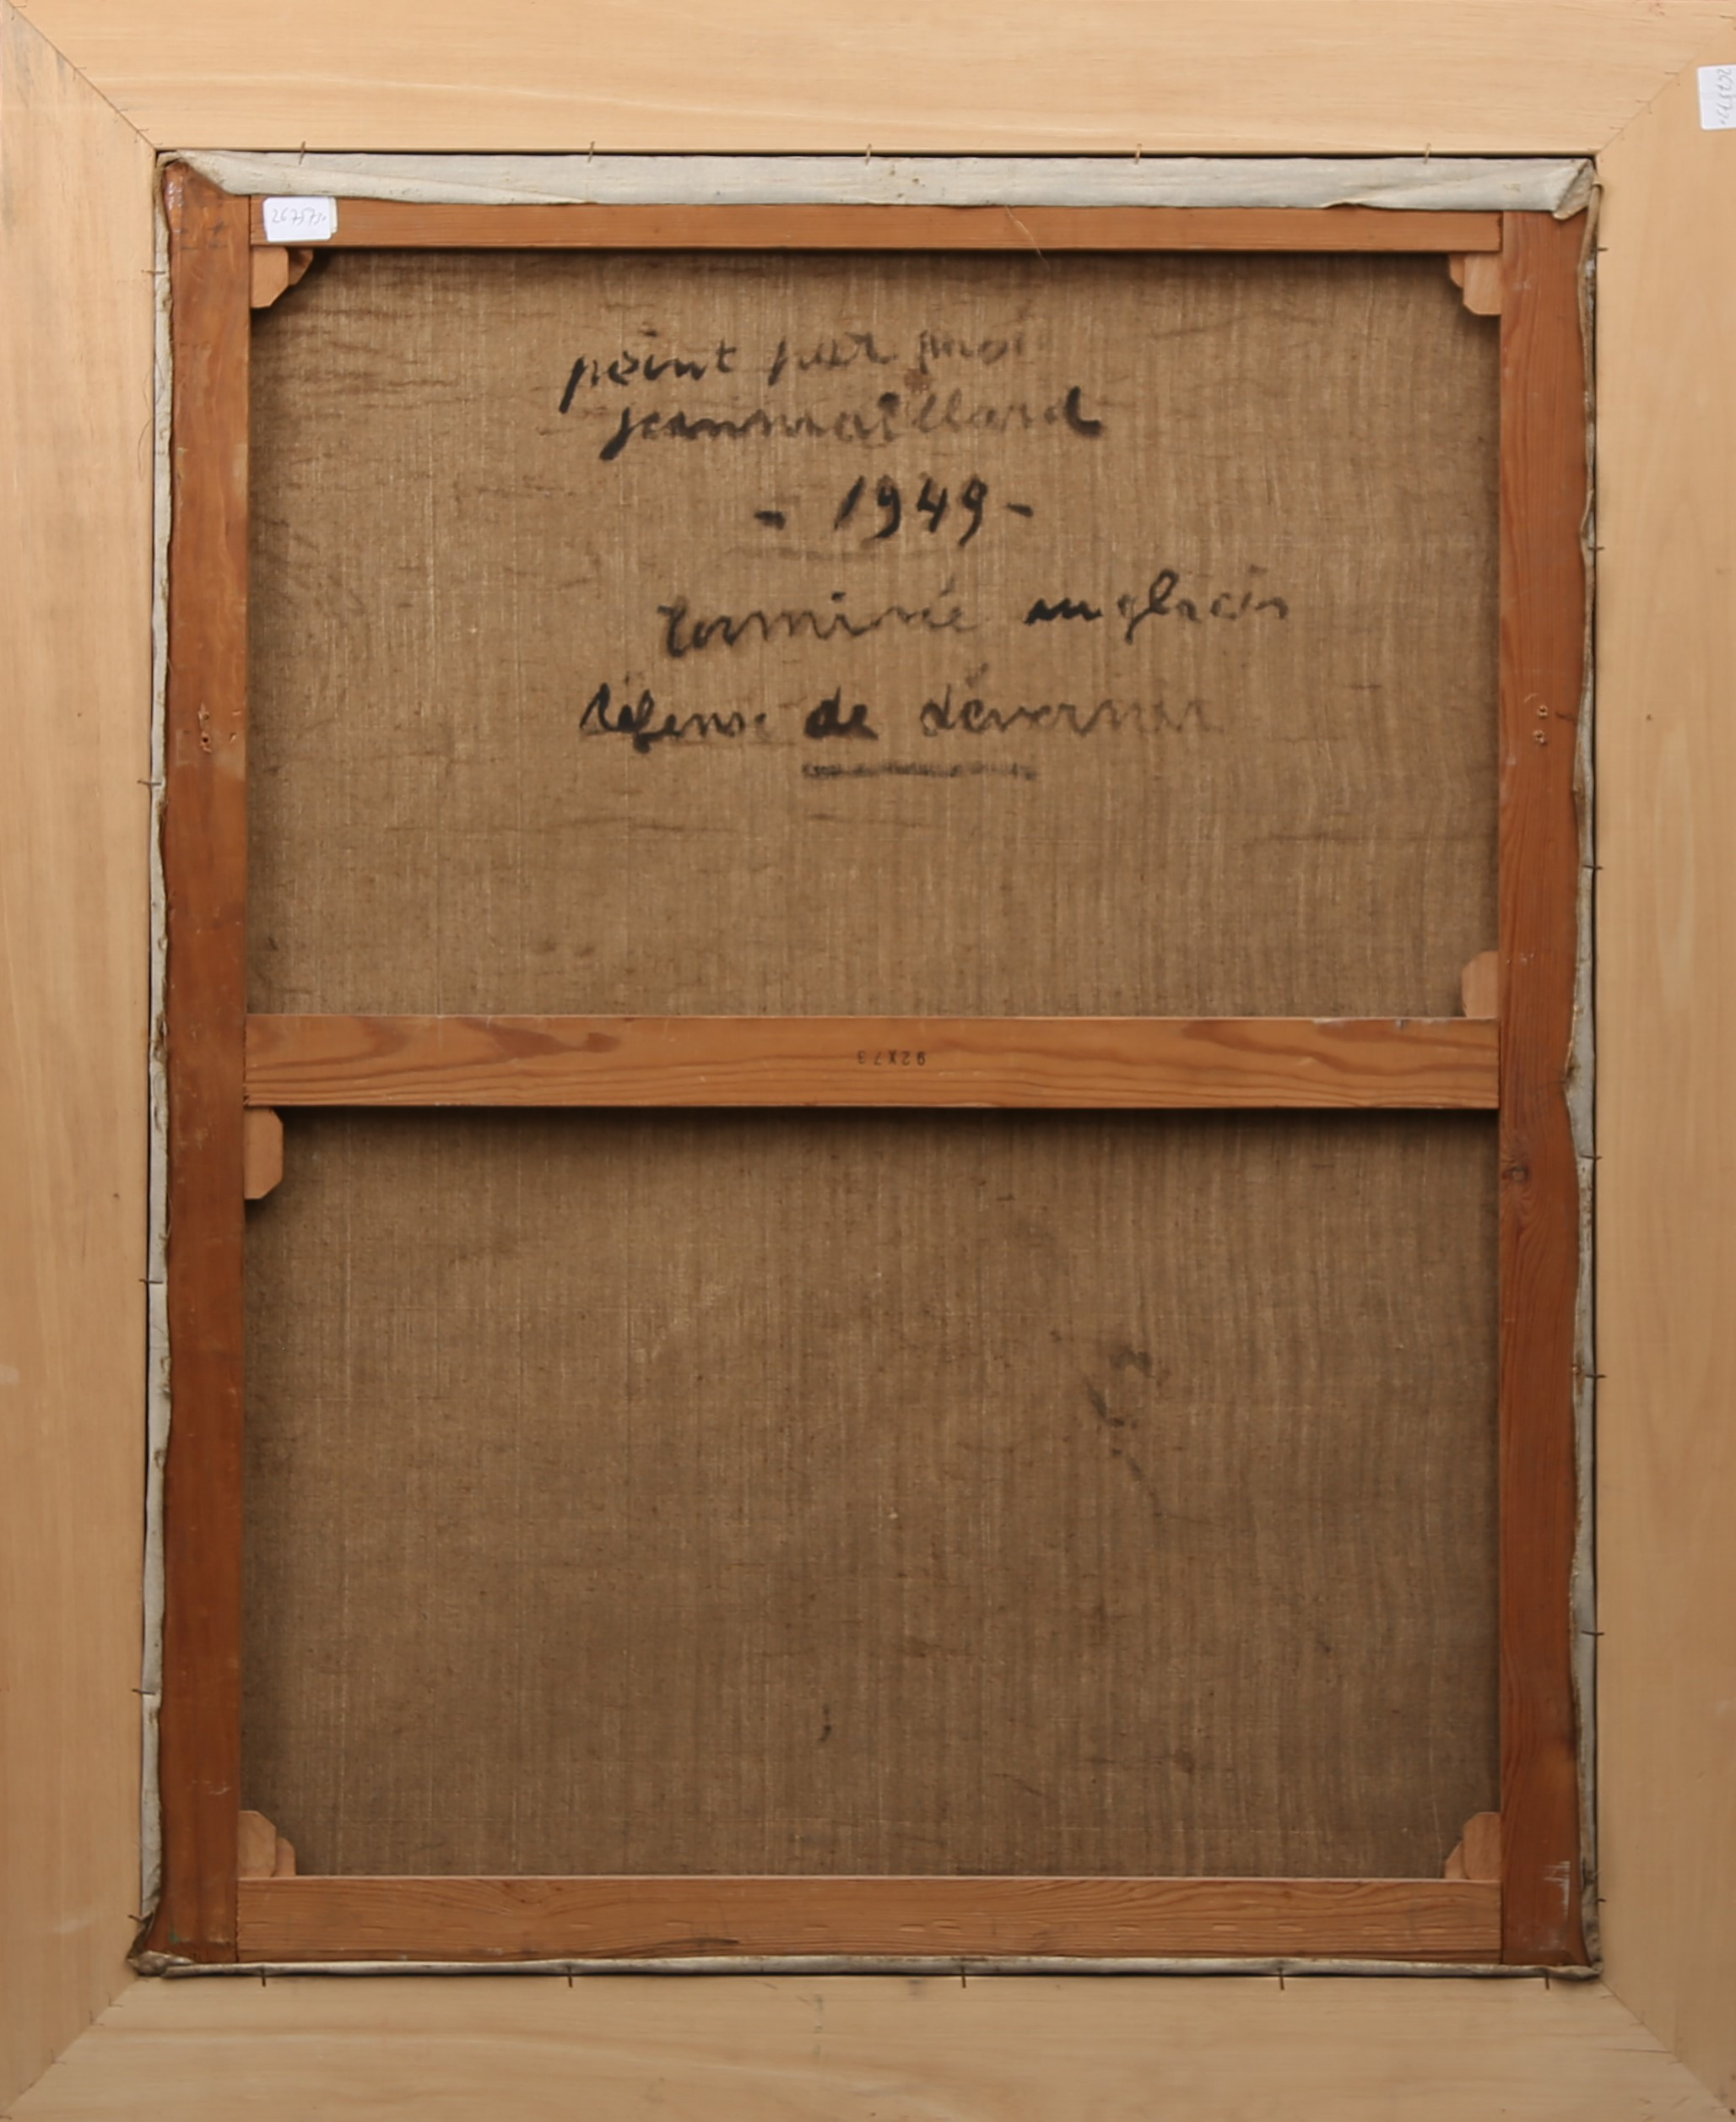 peint par moi
jeanmaillard
- 1949 -
terminée en glacis
défense de dévernir
92X73